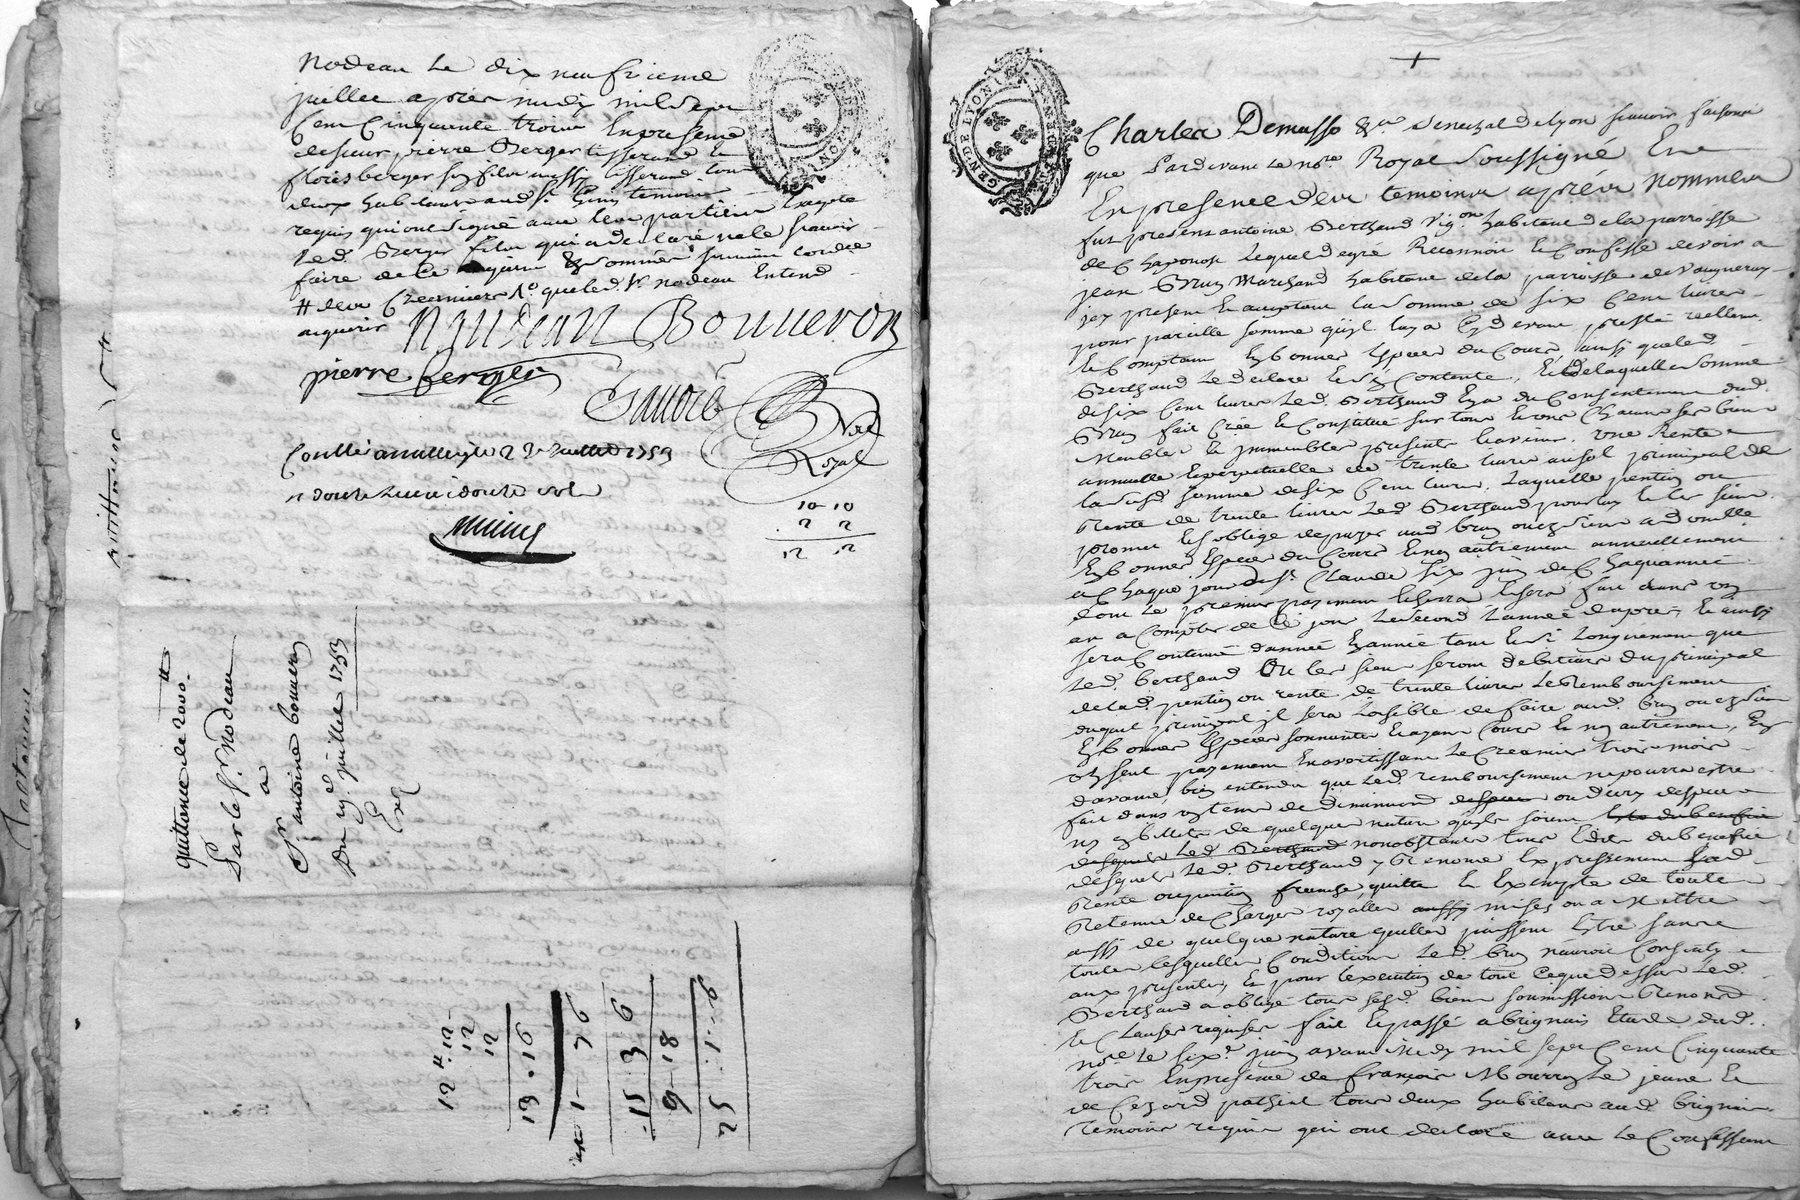 Nodeau Le dix neufvieme
juillet apres midy mil sept
Cent Cinquante trois En presence
de sieur pierre Berger tisserand et
fleury berger son fils aussi tisserand tous
deux habitants aud. st. temoins
requis qui ont signé avec les parties Excepté
Led. Berger fils qui a declaré ne le scavoir
faire de ce requis & sommé suivant lordce
# deux Creanciers que led. Sr. nodeau Entend
acquerir
Naudean Bonneron
pierre berger
Not
Royal
Conllé a 23 Juillet 1753
R douze livres douze sols
10 - 10
2 2
12 . 12
quittance de 2000.#
Par le Sr. Nodeau
a
Sr. antoine bonneron
Du 19e. juillet 1753
12# . 12
12
12
13 . 16
1 - 7 6
15 3 6
9 - 18
25 . 1 . 6
GEN. DE LYON
+
Charles Demasso &a Senechal de lyon scavoir faisons
que Pardevant Le nore Royal Soussigné Et
En presence des temoins apres nommes
fut present antoine Berthaud Vigon habitant de la parroisse
de Chaponost Lequel de gré Reconnoit Et Confesse devoir a
jean Brun Marchand habitant de la parroisse de Vaugneray
icy present Et acceptant La somme de six Cent livres
pour pareille somme qu'il luy a Cy devant presté reellemt
Et Comptant En bonnes Especes du Cours ainsi que led.
Berthaud Le declare Et sen Contente, Et de laquelle somme
de six Cent livres Led. Berthaud En a du Consentement dud.
Brun fait Créé Et Constitué sur tous Et uns Chacuns ses biens
Meubles Et immeubles presents Et avenir. Une Rente
annuelle Et perpetuelle de trente livres au sol principal de
la susd. somme de six Cent livres. Laquelle pention ou
Rente de trente livres Led. Berthaud pour luy Et les siens
promet Et soblige de payer aud. brun ou es siens a domicille
En bonnes Especes du Cours Et non autrement annuellement
a Chaque jour de St. Claude six juin de Chaque année
dont Le premier payement Echerra Et sera fait dans un
an a Compter de Ce jour Le second Lannée dapres, Et ainsi
sera Continué dannée En année tant Et si Longuement que
Led. berthaud Ou les siens seront debiteurs du principal
de lad. pention ou rente de trente livres Le Remboursement
duquel principal il sera Loisible de faire aud. brun ou es siens
En bonnes Especes sonnantes Et ayant Cours Et non autrement, En
Un seul payement En avertissant Le Creancier trois mois
davance, bien entendu que Led. remboursement ne pourra estre
fait dans un tems de diminution despeces ou decry despeces
ny En billets de quelque nature quils soient
desquels Led. Berthaud nonobstant tous Edits du benefice
desquels Led. Berthaud y Renonce Expressement Lad.
Rente ou pention franche, quitte Et Exempte de toute
Retenue de Charges royalles aussy mises ou a Mettre
aussi de quelque nature quelles puissent Estre sans
toutes lesquelles Conditions Led. brun nauroit Consenty
aux presentes Et pour lexecution de tout Ceque dessus Led.
Berthaud a obligé tous sesd. biens soumissions Renond
Et Clauses requises fait Et passé a brignais Etude dud.
nore Le sixe juin avant Midy mil sept Cent Cinquante
trois En presence de françois Mourron Le jeune Et
de Cezard tous deux habitans aud. brignais
temoins requis qui ont declaré avec Le Confessant